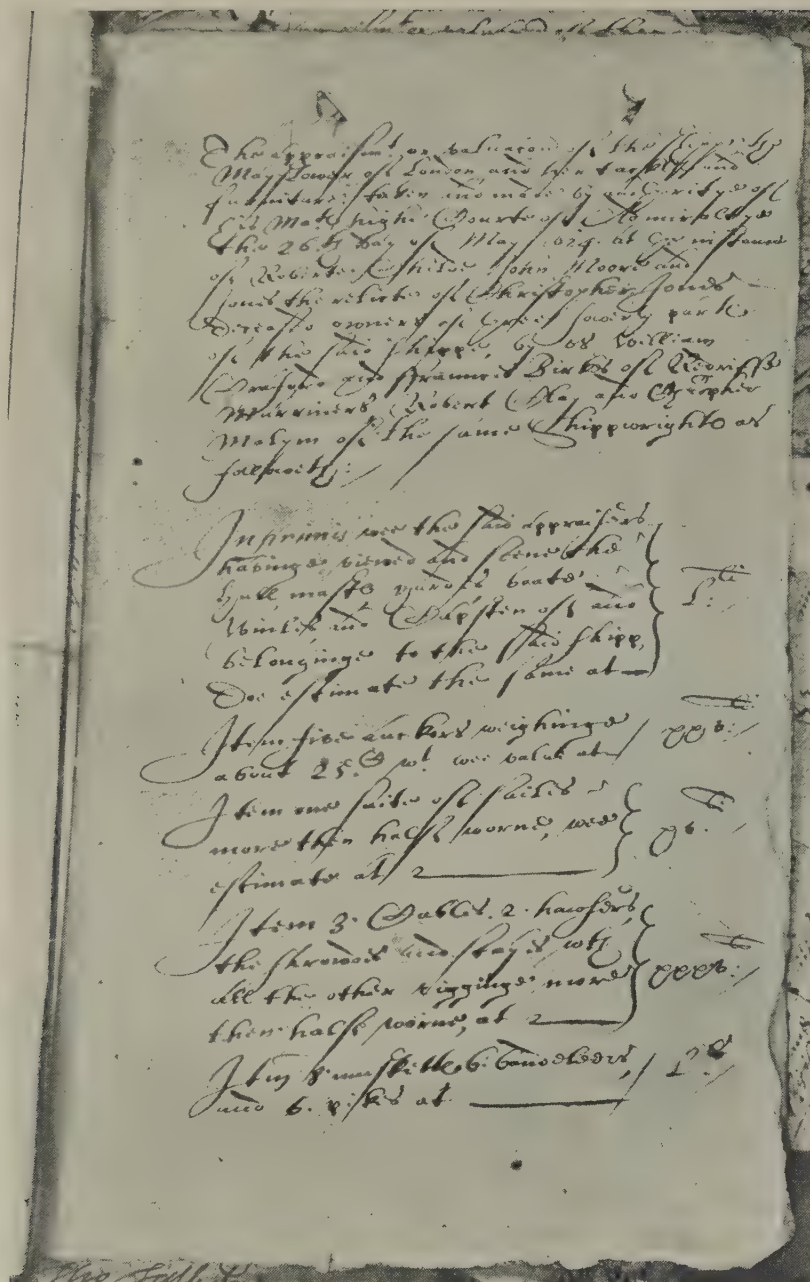 The appraisemt or valuacon of the Shipp the
Mayflower of London and her tackle and
furniture taken and made by aucthoritye of
his Mats highe Courte of Admiraltye
the 26th day of May 1624 at the instance
of Roberte Childe John Moore and
Jones the relicte of Christopher Jones
deceased owners of three fowerth partes
of the said shippe, by us William
and Francis Birks of Redriffe
Marriners, Robert Clay and Christopher
Malym of the same Shippwrights as
followeth:
Inprimis wee the said appraisers
havinge viewed and seene the
hull masts yardes boate
winles and Capsten of and
belonginge to the said shipp,
Doe estimate the same at li
Item five anckors weighinge
about 25 C wt wee value at xxv li
Item one suite of sailes
more then halfe worne, wee
estimate at xv li
Item 3 Cables, 2 hawsers,
the shrowdes and stayes wth
all the other rigginge more
then halfe worne, at xxxv li
Itm 8 muskitts 6 bandeleers,
and 6 pikes at L s